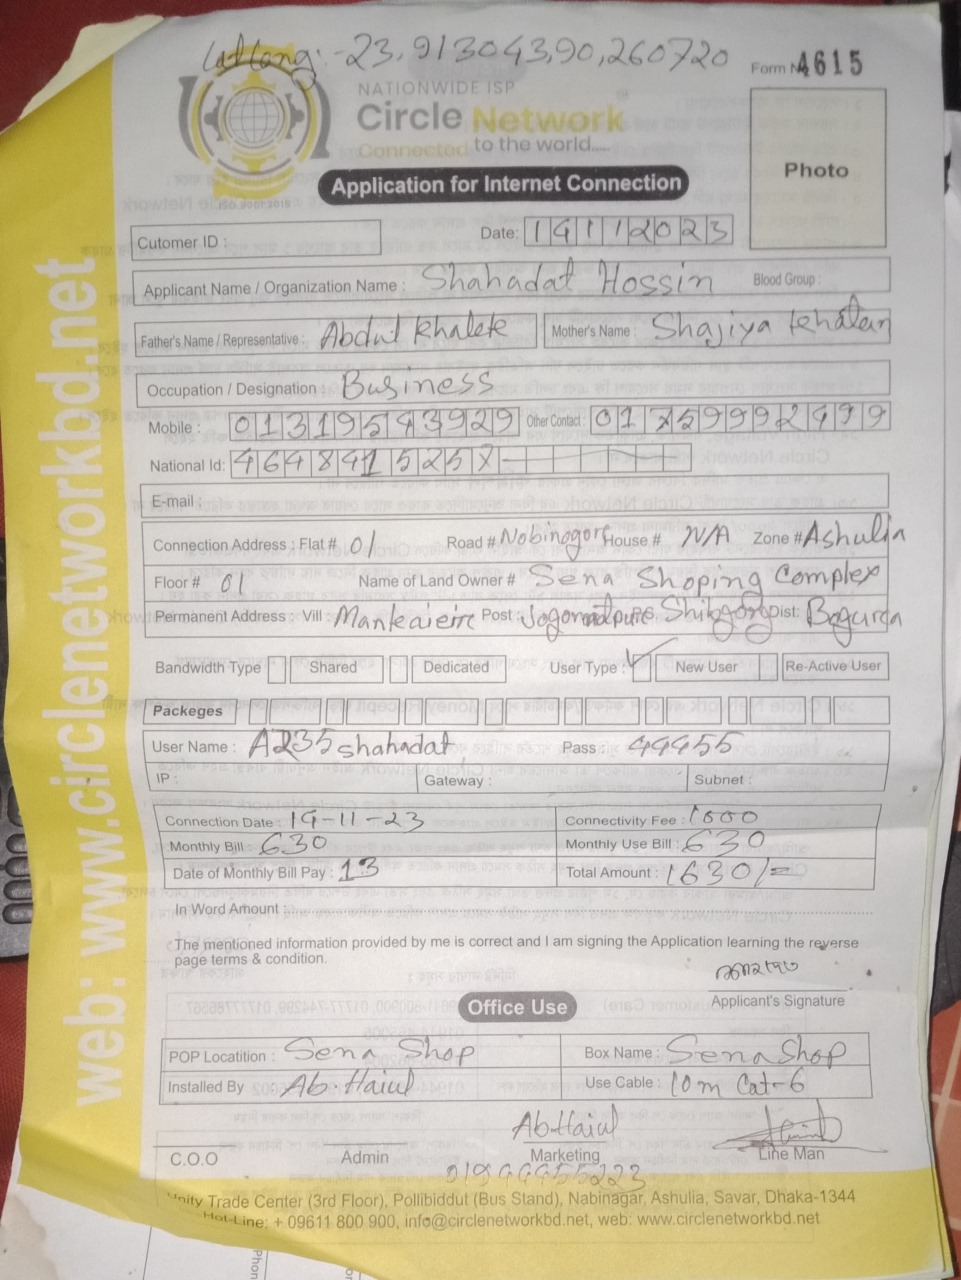 Lat Long:-23,913043,90,260720
Form No 4615
NATIONWIDE ISP
Circle Network
Connected to the world....
ISO 9001:2015
Application for Internet Connection
Photo
Cutomer ID :
Date: 14112023
Applicant Name / Organization Name : Shahadat Hossin Blood Group :
Father's Name / Representative : Abdul Khalek Mother's Name : Shajiya Khatan
Occupation / Designation : Business
Mobile : 01319543929 Other Contact : 01759992499
National Id: 464841525
E-mail :
Connection Address : Flat # 01 Road # Nobinogor House # N/A Zone # Ashulia
Floor # 01 Name of Land Owner # Sena Shoping Complex
Permanent Address : Vill Post : Shibgong Dist: Bogura
Bandwidth Type Shared Dedicated User Type : ✓ New User Re-Active User
Packeges
User Name : A235shahadat Pass : 44455
IP : Gateway : Subnet :
Connection Date : 14-11-23 Connectivity Fee : 1000
Monthly Bill : 630 Monthly Use Bill : 630
Date of Monthly Bill Pay : 13 Total Amount : 1630/=
In Word Amount
The mentioned information provided by me is correct and I am signing the Application learning the reverse
page terms & condition.
Applicant's Signature
Office Use
POP Locatition : Sena Shop Box Name : Sena Shop
Installed By Ab. Haiul Use Cable : 10m Cat-6
Ab.Haiul
C.O.O Admin Marketing Line Man
01944455223
Unity Trade Center (3rd Floor), Pollibiddut (Bus Stand), Nabinagar, Ashulia, Savar, Dhaka-1344
Hot-Line: + 09611 800 900, info@circlenetworkbd.net, web: www.circlenetworkbd.net
web: www.circlenetworkbd.net